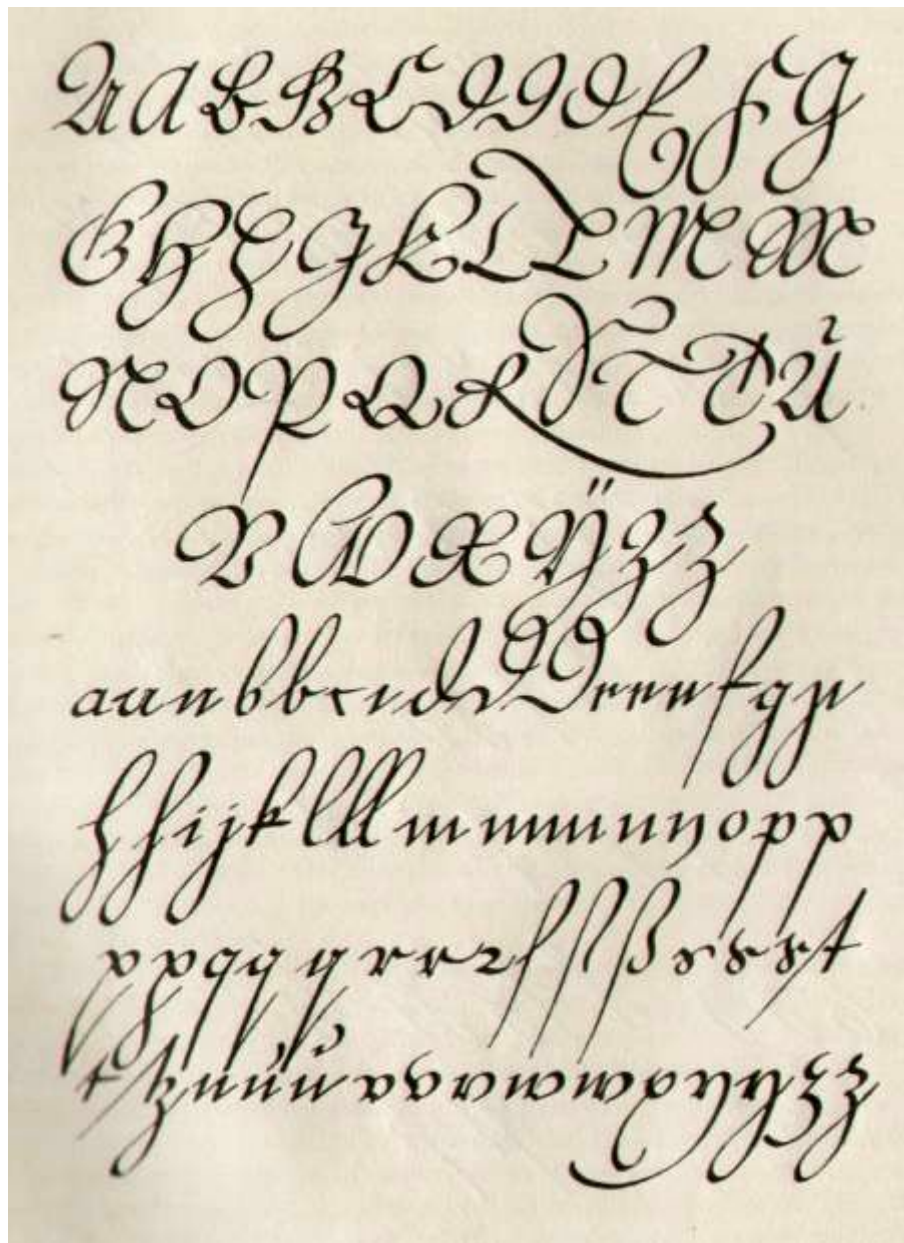 A A B B C D D D E F G
G H H J K L L M M
N O P Q R S T T U
V W X Ÿ Z Z
a a a b b c c d d d d e e e e f g g
h h i j k l l l m m m n n y o p p
p p q q q r r r z ſ ſ ß s s s s t
t tz u u u v v v w w w x y y z z